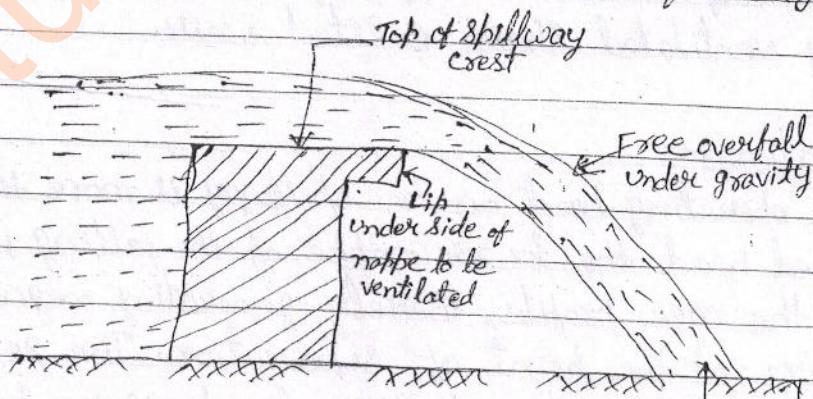 Top of spillway
crest
Free overfall
under gravity
Lip
under side of
nappe to be
ventilated